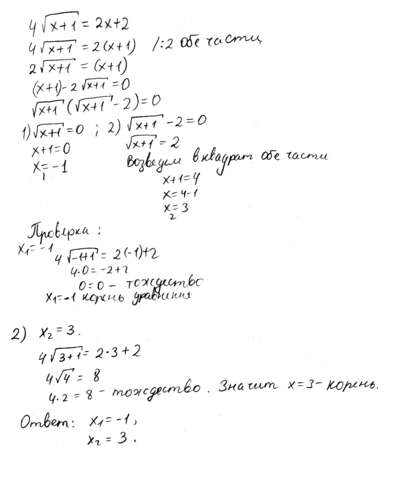 4√(x+1) = 2x+2
4√(x+1) = 2(x+1) /:2 обе части
2√(x+1) = (x+1)
(x+1)-2√(x+1) = 0
√(x+1) (√(x+1) -2) = 0
1) √(x+1) = 0 ; 2) √(x+1) -2 = 0
x+1=0 √(x+1) = 2
x₁=-1 Возведем в квадрат обе части
x+1=4
x=4-1
x₂=3
Проверка :
x₁=-1
4√(-1+1) = 2(-1)+2
4·0 = -2+2
0=0 - тождество
x₁=-1 корень уравнения
2) x₂ = 3.
4√(3+1) = 2·3+2
4√4 = 8
4·2 = 8 - тождество. Значит x=3 - корень.
Ответ: x₁=-1,
x₂ = 3.